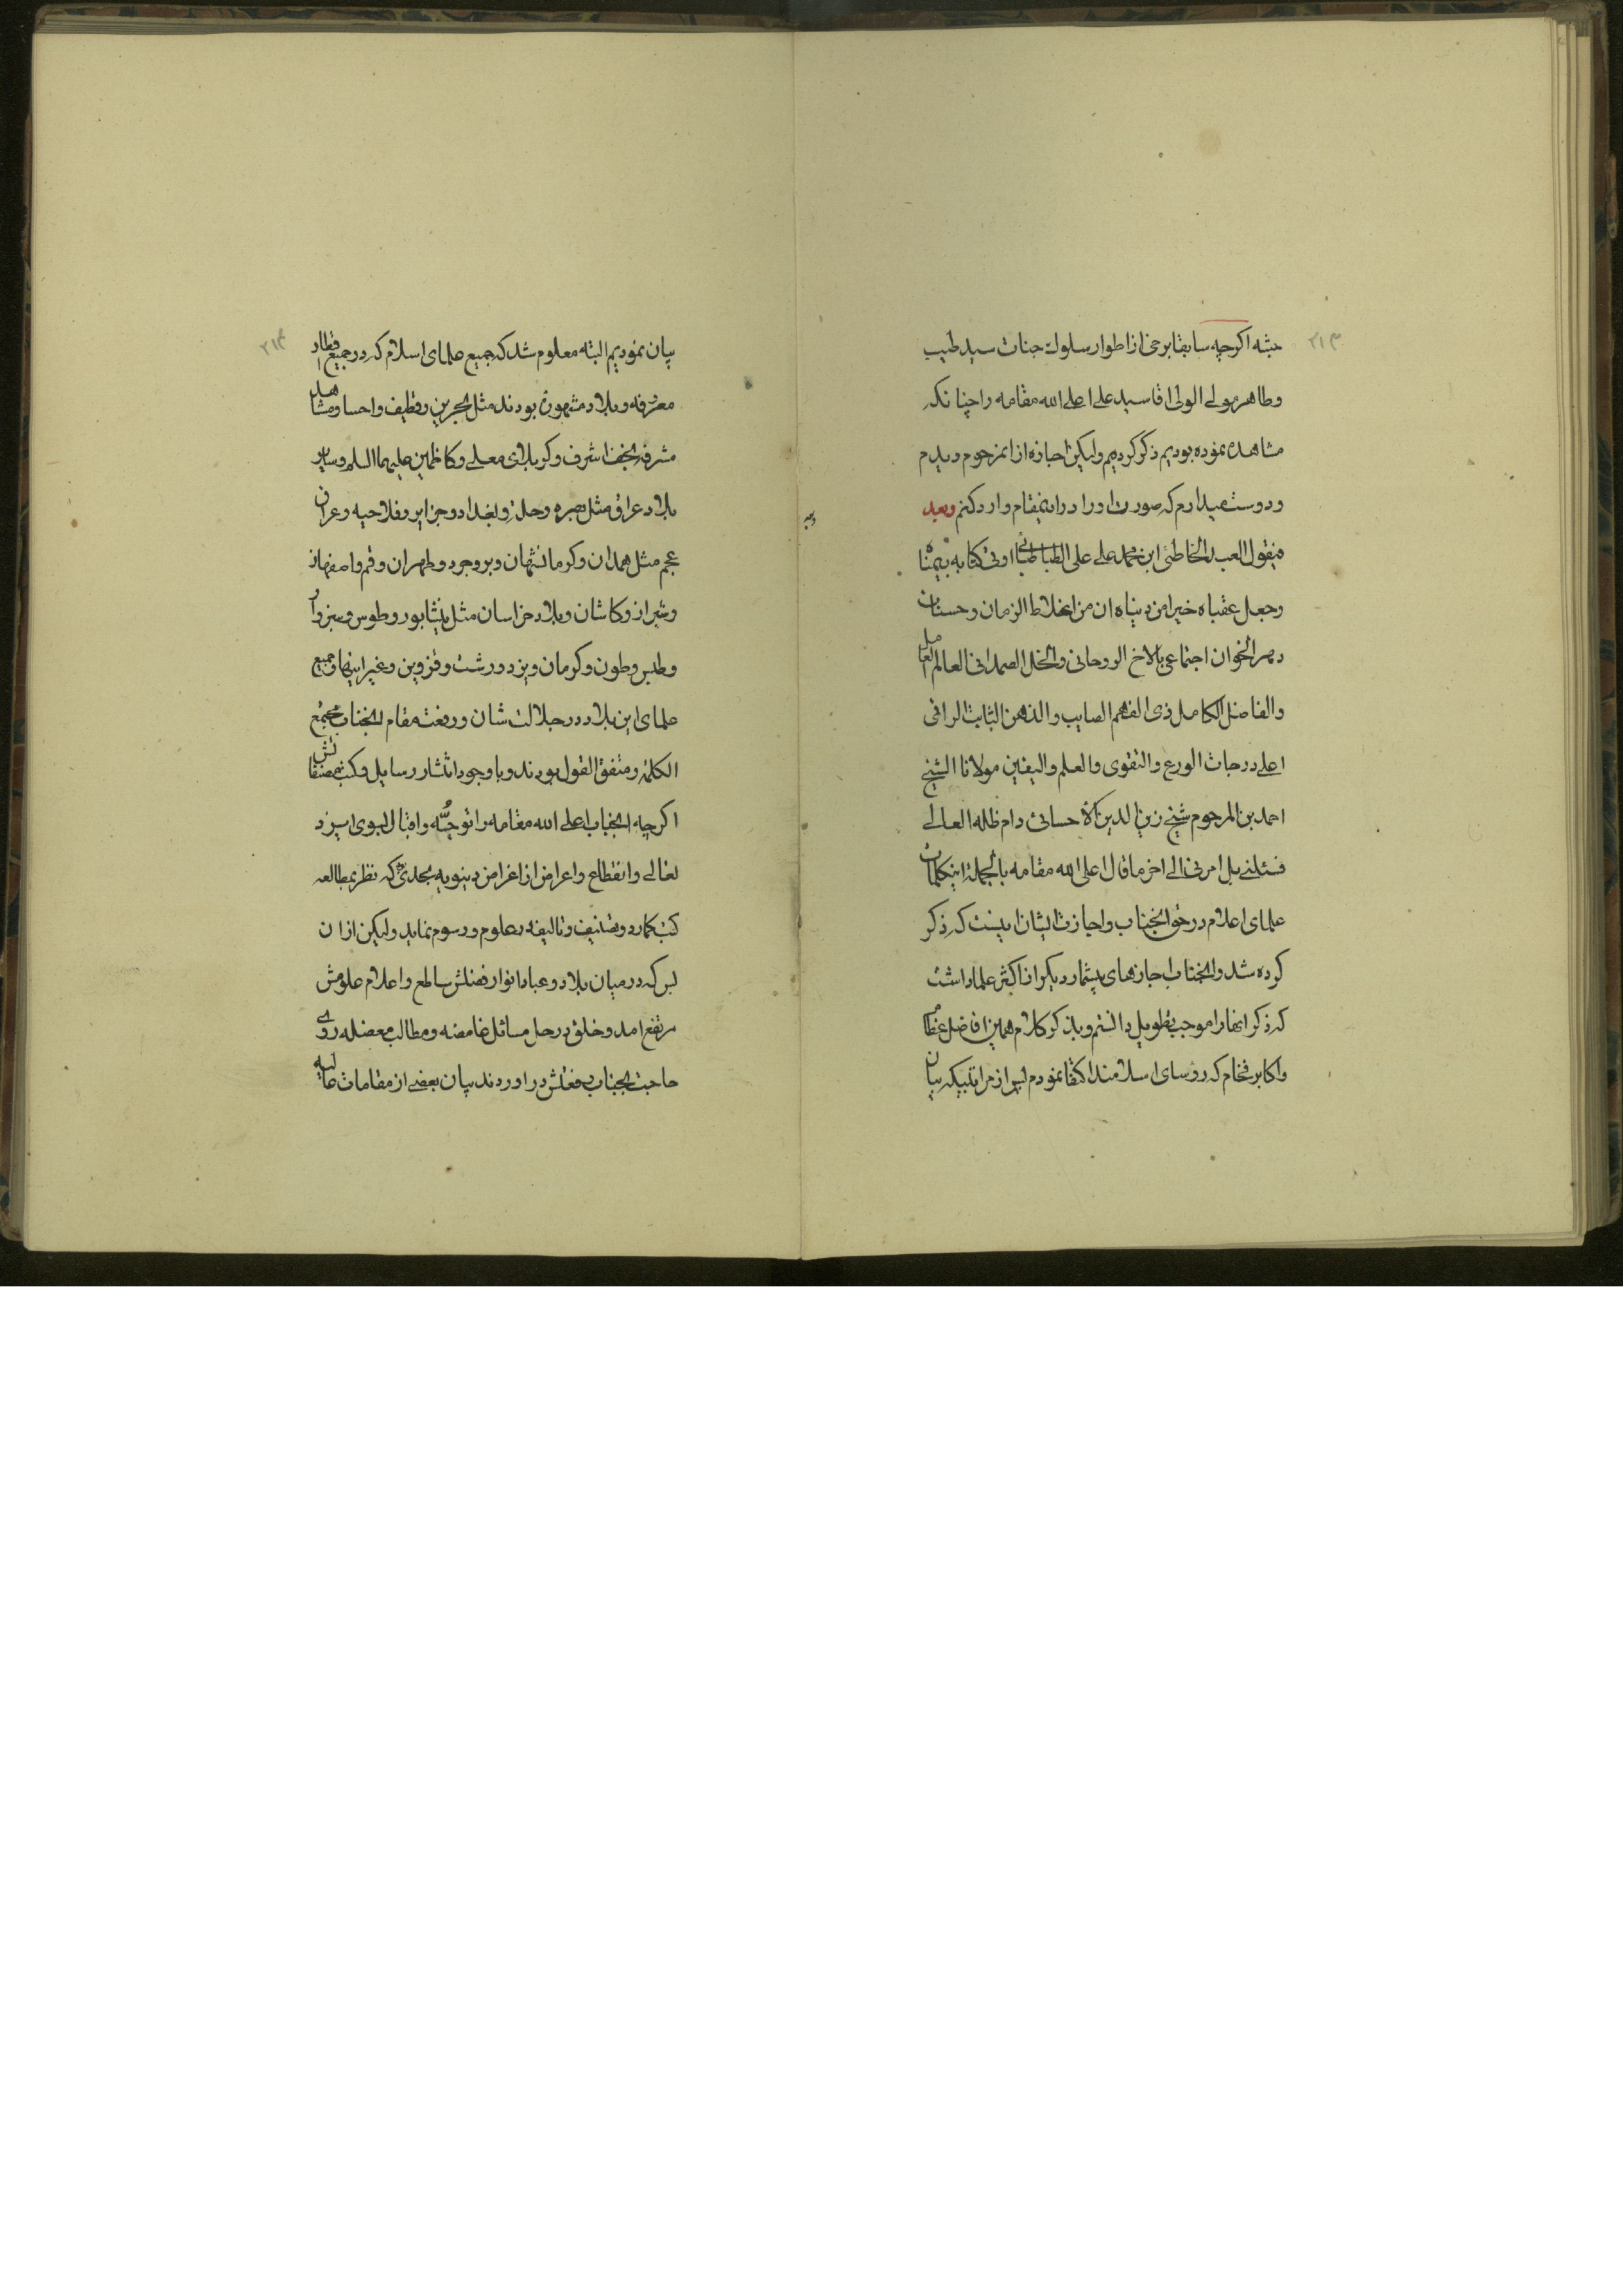 ۲۱۳
حبثه اکرچه سابقا برخی از اطوار سلوك جناب سید طیب
و طاهر مولی الولی اقا سید علی اعلی الله مقامه را چنانکه
مشاهده نموده بودیم ذکر کردیم ولیکن اجازه از انمرحوم دیدم
و دوست میدارم که صورت او را در اینمقام وارد کنم وبعد
فیقول العبد الخاطئ ابن محمد علی علی الطباطبائی اوتی کتابه بیمناه
وجعل عقباه خیرا من دنیاه ان من اغلاط الزمان وحسنات
دهر الخوان اجتماعی بالاخ الروحانی والخل الصمدانی العالم العامل
والفاضل الکامل ذی الفهم الصایب والذهن الثابت الراقی
اعلی درجات الورع والتقوی والعلم والیقین مولانا الشیخ
احمد بن المرحوم شیخ زین الدین الاحسائی دام ظله العالی
فسئلنی بل امرنی الی اخر ما قال اعلی الله مقامه بالجملة اینکلمات
علمای اعلام در حق انجناب واجازت ایشان اینست که ذکر
کرده شد وانجناب اجازهای بیشمار دیکر از اکثر علما داشت
که ذکر انها را موجب تطویل دانستم وبذکر کلام همین افاضل عظام
واکابر فخام که رؤسای اسلامند اکتفا نمودم پس از مراتبیکه بیان
۲۱۴
بیان نمودیم البته معلوم شد که جمیع علمای اسلام که در جمیع اقطار
معروفه وبلاد مشهوره بودند مثل بحرین وقطیف واحسا ومشاهد
مشرفه نجف اشرف وکربلای معلی وکاظمین علیهما السلم وسایر
بلاد عراق مثل بصره وحله وبغداد وجزایر وفلاحیه وعراق
عجم مثل همدان وکرمانشهان وبروجرد وطهران وقم واصفهان
وشیراز وکاشان وبلاد خراسان مثل نیشابور وطوس وسبزوار
وطبس وطون وکرمان ویزد ورشت وقزوین وغیر اینها وجمیع
علمای این بلاد در جلالت شان ورفعت مقام انجناب مجتمع
الکلمه ومتفق القول بودند وبا وجود انتشار رسایل وکتب مصنفاتش
اکرچه انجناب اعلی الله مقامه را توجه واقبال بسوی ایزد
تعالی وانقطاع واعراض از اغراض دنیویه بحدی که نظر بمطالعه
کتب کمارد وتصنیف وتالیفه رعلوم ورسوم نماید ولیکن از ان
بس که در میان بلاد وعباد انوار فضلش ساطع واعلام علومش
مرتفع امد وخلق در حل مسائل غامضه ومطالب معضله روی
حاجت بجناب رفعتش در اوردند بیان بعضی از مقامات عالیه